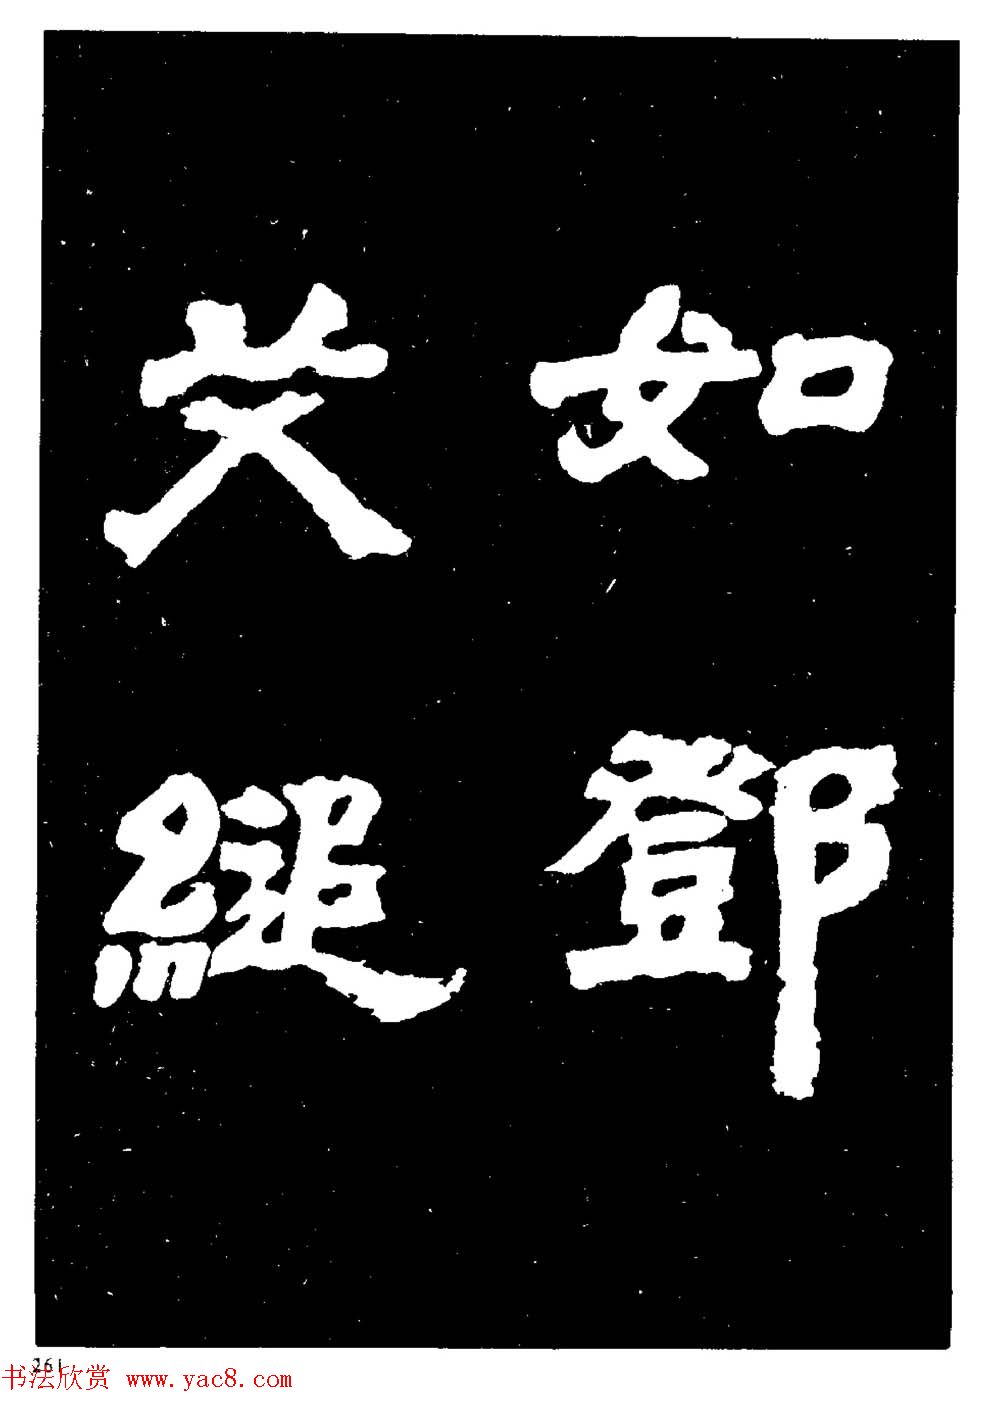 如鄧
艾縋
261
书法欣赏 www.yac8.com